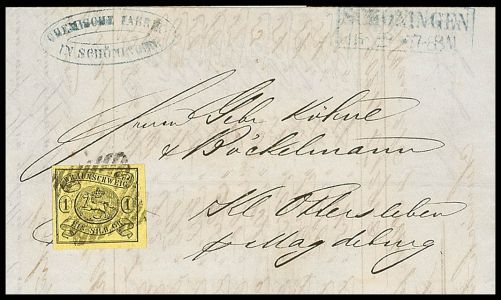 CHEMISCHE FABRIK
IN SCHÖNINGEN
SCHÖNINGEN
7-8 M
Herrn Gebr Köhne
& Böckelmann
BRAUNSCHWEIG
1 1
EIN SILB. GR.
Kl Ottersleben
p Magdeburg